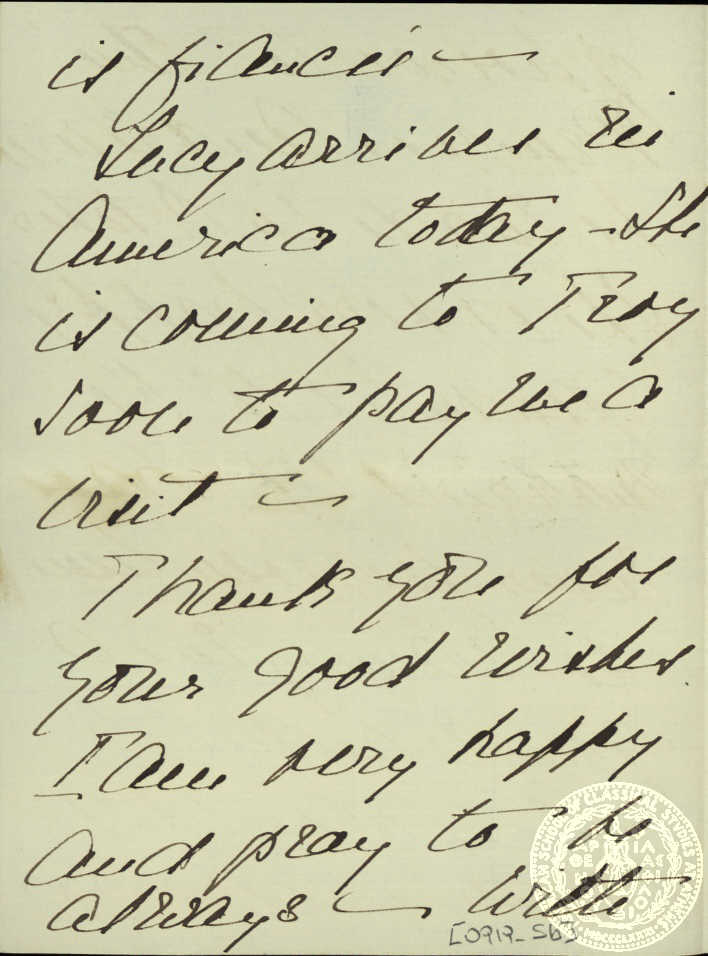 is fiancée —
Lucy arrives in
America today — She
is coming to Troy
soon to pay me a
visit —
Thank you for
your good wishes
I am very happy
and pray to be
always — with